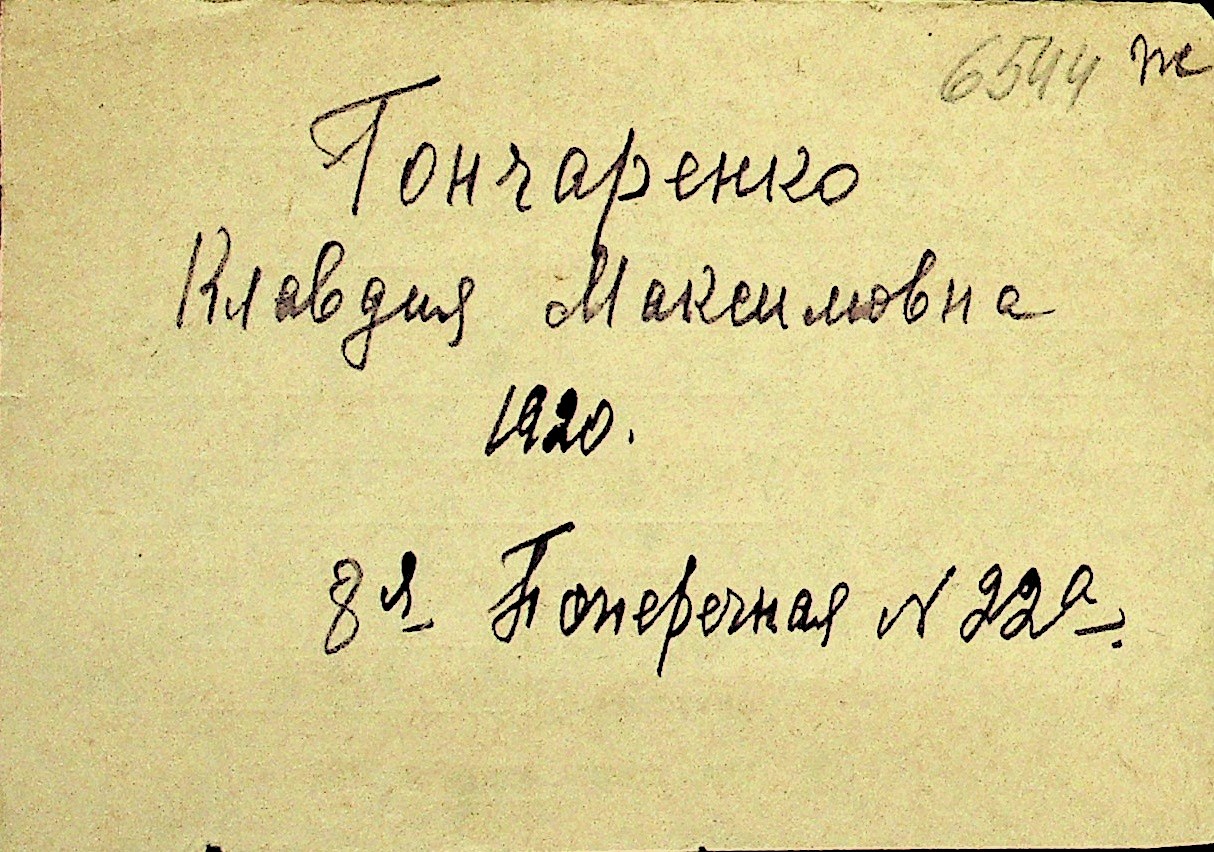 6544 ж
Гончаренко
Клавдия Максимовна
1920.
8я Поперечная N 22а.